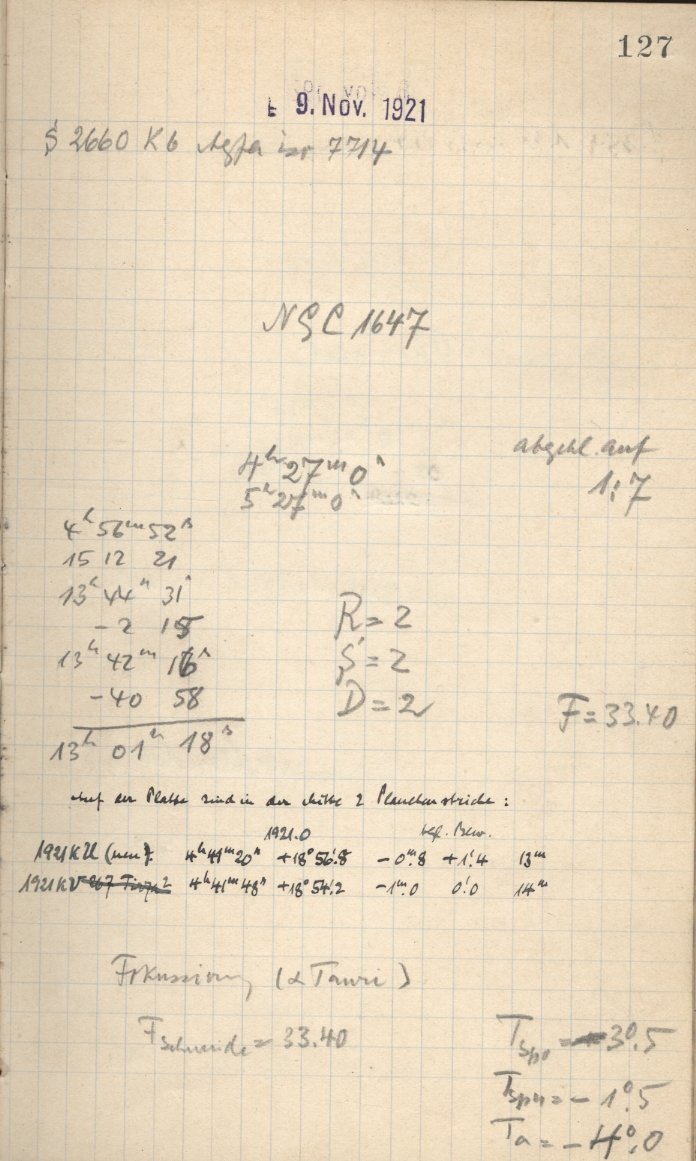 127
9. Nov. 1921
S 2660 Kb Agfa iso 7714
NGC 1647
abgebl. auf
1:7
4ʰ 27ᵐ 0ˢ
5ʰ 27ᵐ 0ˢ
4ʰ 56ᵐ 52ˢ
15 12 21
13ʰ 44ᵐ 31ˢ
-2 15
13ʰ 42ᵐ 16ˢ
-40 58
13ʰ 01ᵐ 18ˢ
R = 2
S = 2
D = 2
F = 33.40
Auf der Platte sind in der Mitte 2 Planetenstriche:
1921.0 tgl. Bew.
1921 KU (neu): 4ʰ 41ᵐ 20ˢ +18° 56'.8 -0ᵐ.8 +1'.4 13ᵐ
1921 KV 4ʰ 41ᵐ 48ˢ +18° 54'.2 -1ᵐ.0 0'.0 14ᵐ
Fokussierung (α Tauri)
F Schneide = 33.40
T Spo = -3°.5
T Spu = -1°.5
Ta = -4°.0